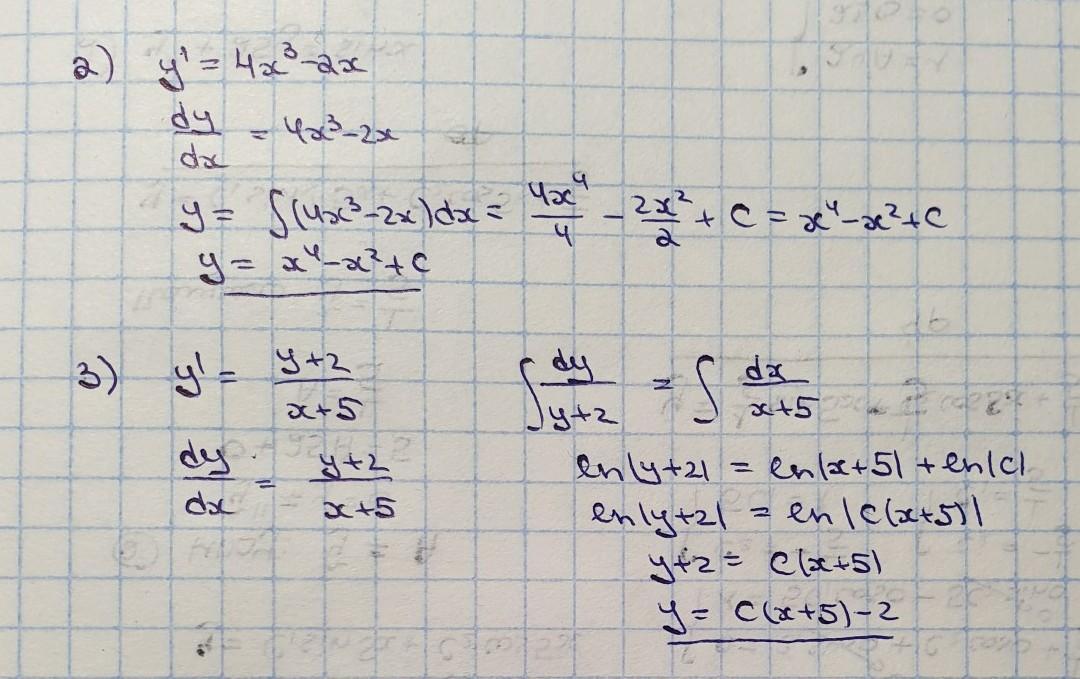 2) y' = 4x³-2x
dy/dx = 4x³-2x
y = ∫(4x³-2x)dx = 4x⁴/4 - 2x²/2 + C = x⁴-x²+C
y = x⁴-x²+C
3) y' = y+2/x+5
dy/dx = y+2/x+5
∫dy/y+2 = ∫dx/x+5
ln|y+2| = ln|x+5| + ln|C|
ln|y+2| = ln|C(x+5)|
y+2 = C(x+5)
y = C(x+5)-2